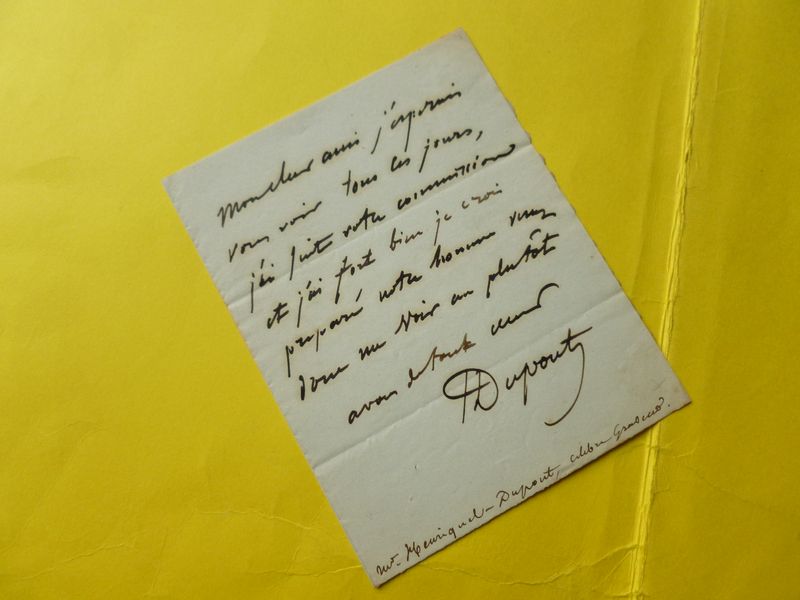 Mon cher ami j'esperais
vous voir tous ces jours,
j'ai fait votre commission
et j'ai fort bien je crois
preparé notre homme venez
donc me voir au plutôt
avous de tout cœur
HDupont
Mr. Henriquel-Dupont, célèbre Graveur.